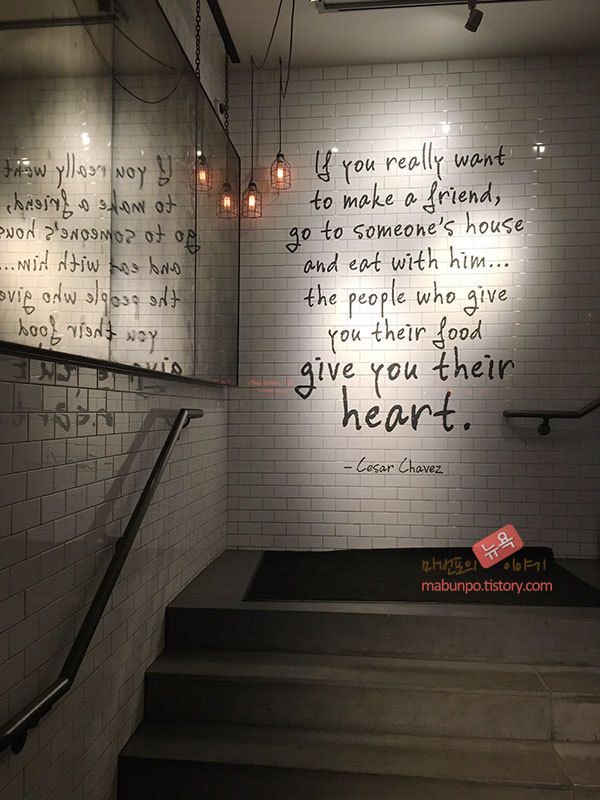 If you really want
to make a friend,
go to someone's house
and eat with him...
the people who give
you their food
give you their
heart.
- Cesar Chavez
마번포의 뉴욕 이야기
mabunpo.tistory.com